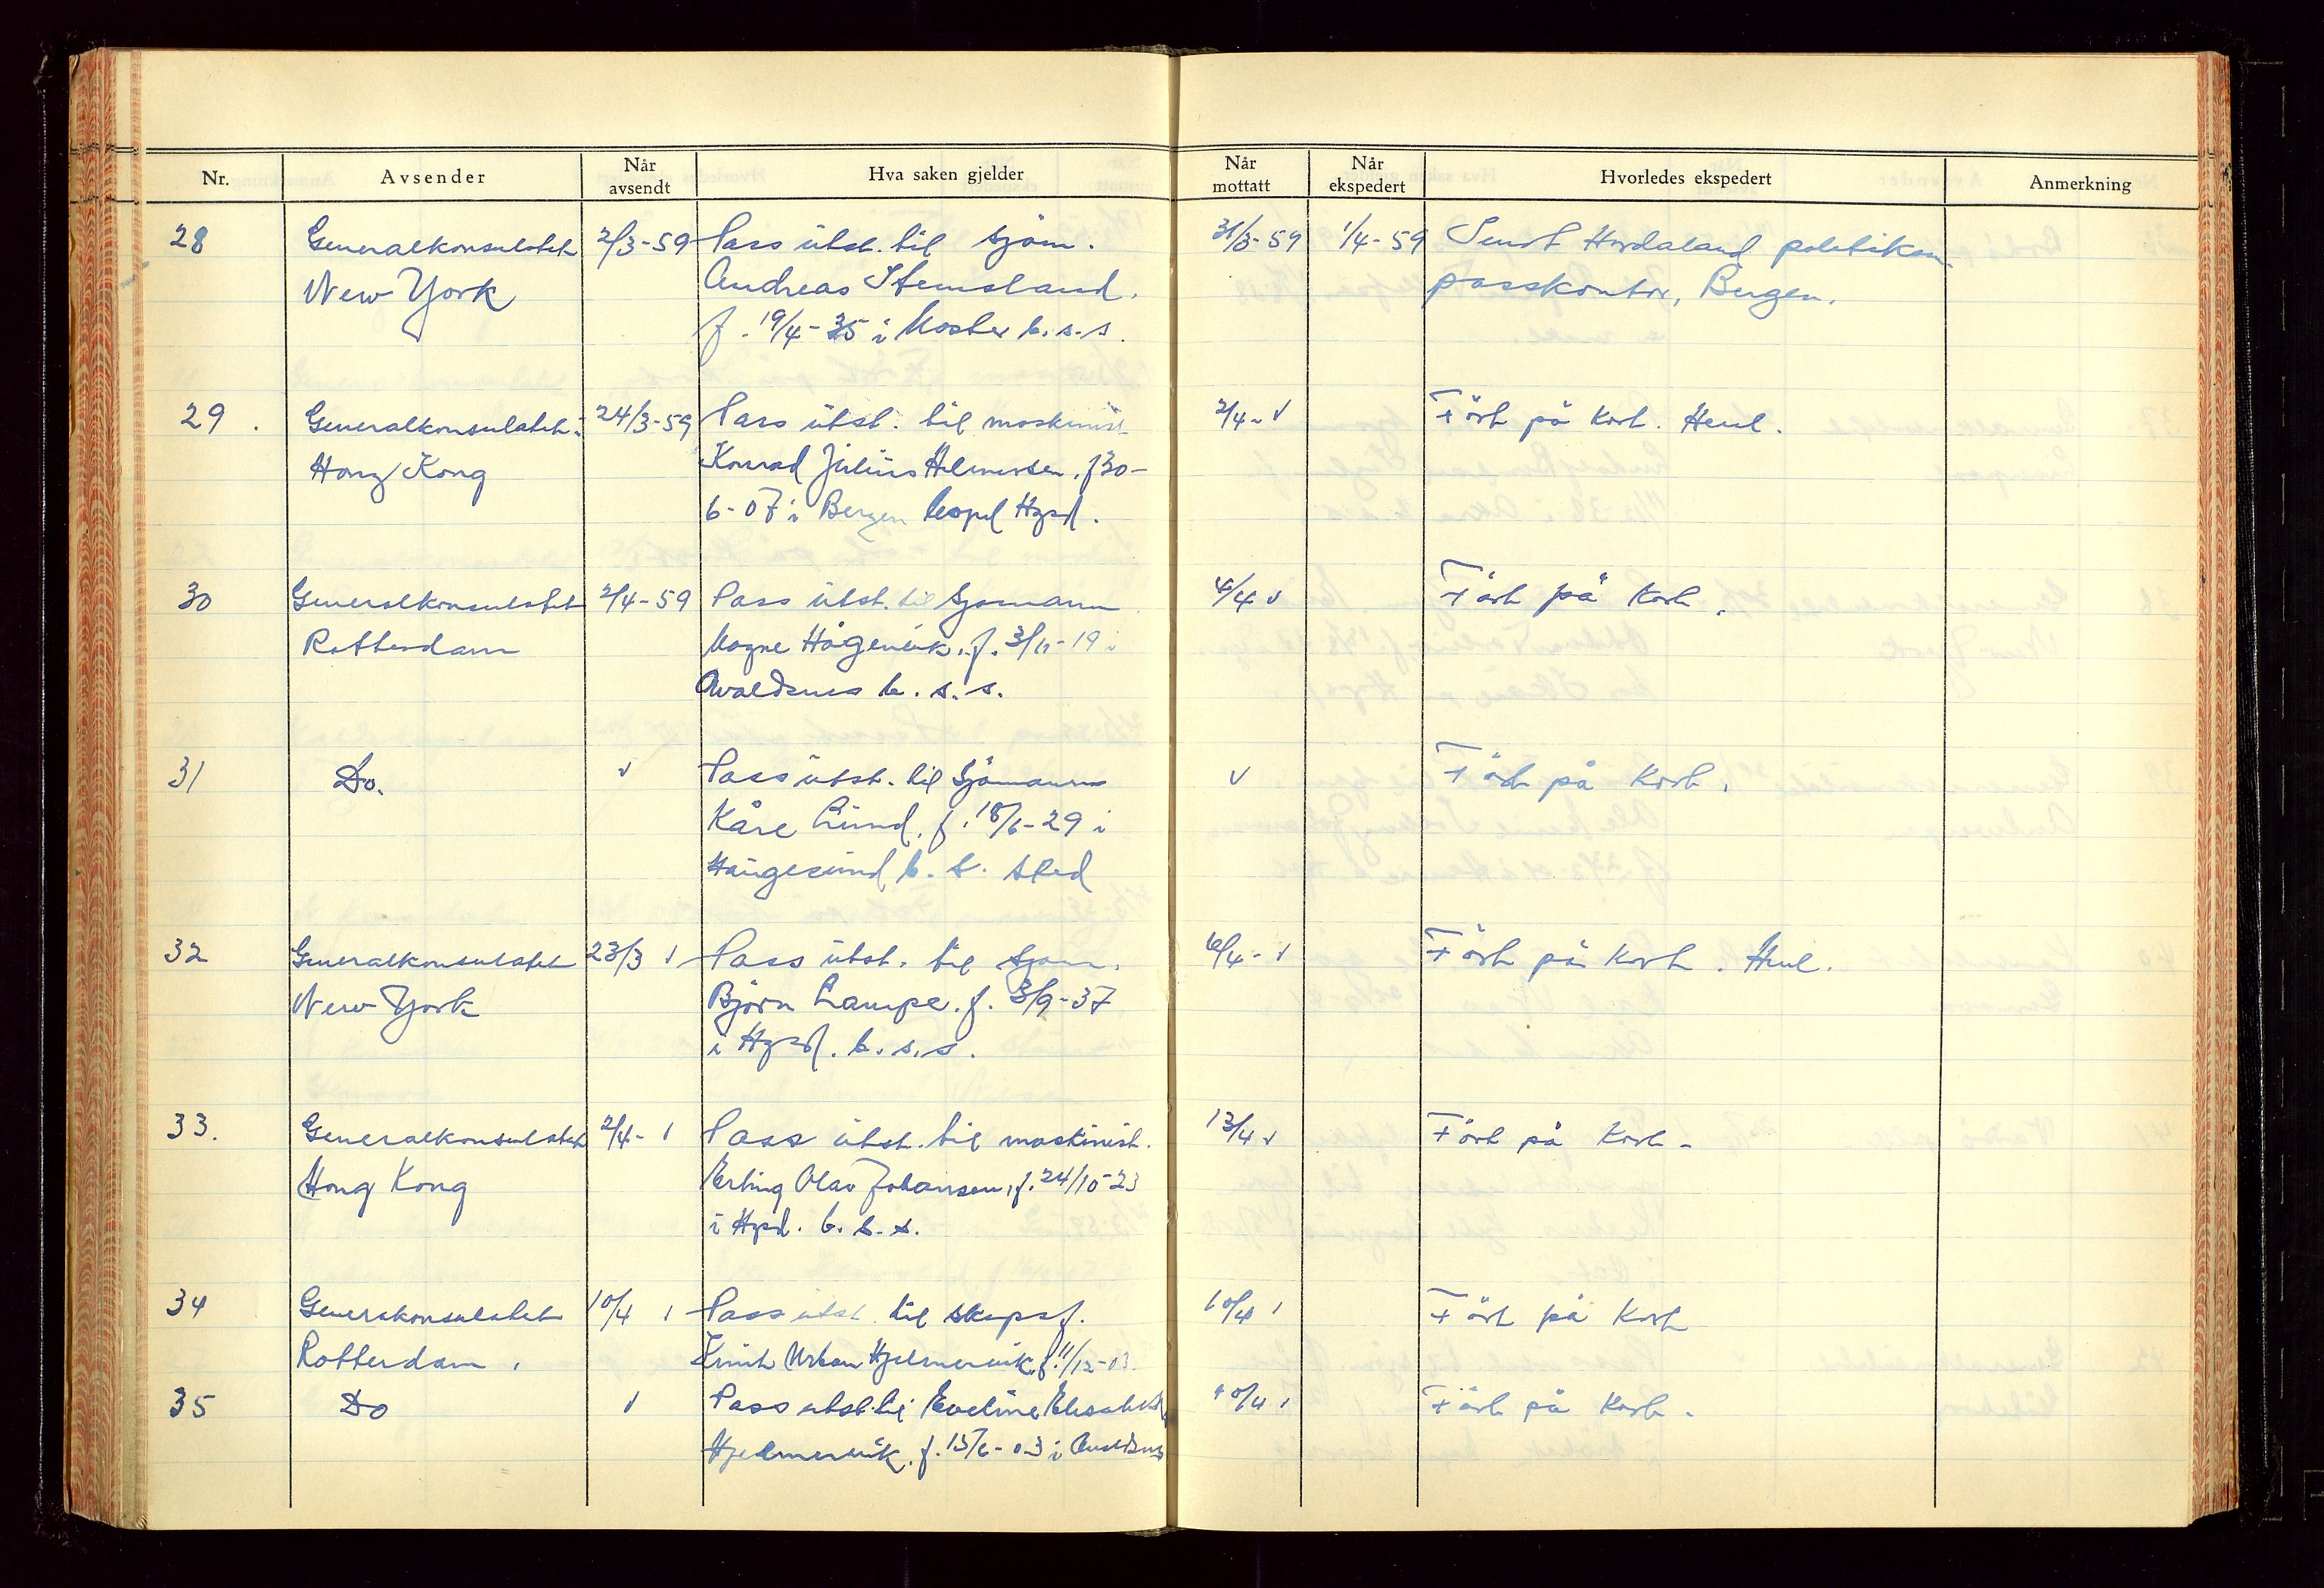 Nr. Avsender Når avsendt Hva saken gjelder Når mottatt Når ekspedert Hvorledes ekspedert Anmerkning
28 Generalkonsulatet 2/3-59 Pass utst. til sjöm. 31/3-59 1/4-59 Sendt Hordaland politikam.
New York Andreas Stemsland. passkontor, Bergen.
f. 19/4-35 i Moster b.s.s.
29. Generalkonsulatet 24/3-59 Pass utst. til maskinist 2/4- v Fört på kort. Henl.
Hong Kong Konrad Julius Helmersen. f 30-
6-07 i Bergen bopel Hgsd.
30 Generalkonsulatet 2/4-59 Pass utst. til Sjömann 6/4 v Fört på kort.
Rotterdam Magne Hågenvik. f. 3/11-19 i
Avaldsnes b.s.s.
31 Do. v Pass utst. til Sjömann v Fört på kort.
Kåre Lund. f. 18/6-29 i
Haugesund b. s. sted
32 Generalkonsulatet 23/3 v Pass utst. til sjöm. 6/4- v Fört på kort. Henl.
New York Björn Lampe. f. 3/9-37
i Hgsd. b.s.s.
33. Generalkonsulatet 2/4- v Pass utst. til maskinist. 13/4 v Fört på kort.
Hong Kong Erling Olav Johansen, f. 24/10-23
i Hgsd. b.s.s.
34 Generakonsulatet 10/4 v Pass utst til skipsf. 10/4 v Fört på kort
Rotterdam. Urban Hjelmervik f. 11/12-03.
35 Do v Pass utst. til Eveline Elisabeth 10/4 v Fört på kort.
Hjelmervik. f. 15/6-03 i Avaldsnes